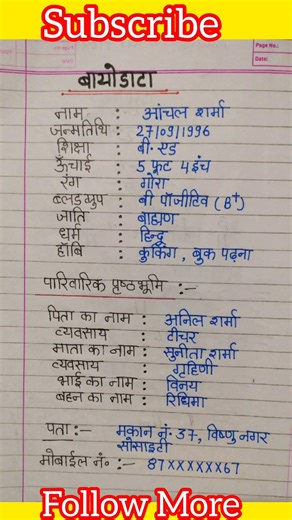 Subscribe
Page No.:
Date:
बायोडाटा
नाम : आंचल शर्मा
जन्मतिथि : 27/09/1996
शिक्षा : बी. एड
ऊँचाई : 5 फूट 4 इंच
रंग : गोरा
ब्लडग्रुप : बी पॉजीटिव (B+)
जाति : ब्राह्मण
धर्म : हिन्दू
हॉबि : कुकिंग, बुक पढ़ना
पारिवारिक पृष्ठभूमि :-
पिता का नाम : अनिल शर्मा
व्यवसाय : टीचर
माता का नाम : सुनीता शर्मा
व्यवसाय : गृहिणी
भाई का नाम : विनय
बहन का नाम : रिधिमा
पता :- मकान नं. 37, विष्णु नगर
सोसाइटी
मोबाईल नं० :- 87xxxxxx67
Follow More